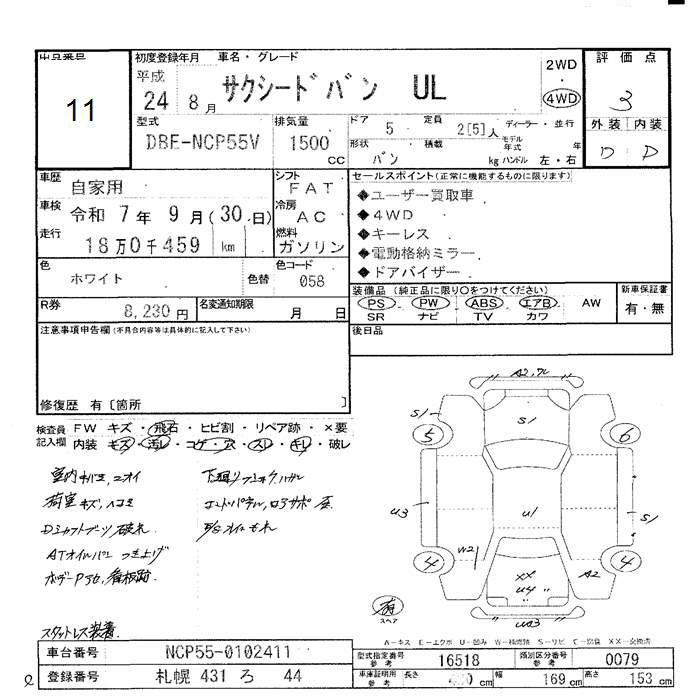 出品番号 初度登録年月 車名・グレード 評価点
11
平成 24 8月 サクシードバン UL 2WD・4WD 3
型式 排気量 ドア 5 定員 2[5]人 ディーラー・並行 外装 内装
DBE-NCP55V 1500 cc 形状 バン 積載 kg モデル年式 年 ハンドル 左・右 D D
車歴 自家用 シフト FAT セールスポイント(正常に機能するものに限ります)
◆ユーザー買取車
車検 令和 7年 9月(30日) 冷房 AC
◆4WD
◆キーレス
走行 18万0千459 km 燃料 ガソリン
◆電動格納ミラー
◆ドアバイザー
色 ホワイト 色替 色コード 058
装備品(純正品に限り○をつけてください) 新車保証書
PS・PW・ABS・エアB・AW 有・無
SR ナビ TV カワ
R券 8,230円 名変通知期限 月 日
注意事項申告欄(不具合内容等は具体的に記入して下さい) 後日品
修復歴 有〔箇所 〕
検査員 FW キズ・飛石・ヒビ割・リペア跡・×要
記入欄 内装 キズ・汚レ・コゲ・穴・スレ・キレ・破レ
A2,
S1 S1
5 6
U3 U1 S1
W2 A2
4 4
XX
U4
有
スペア
U2
室内キバミ,ニオイ
荷室キズ,ヘコミ
Dシャフトブーツ破れ
ATオイルパン つき上げ
ボデーPタロ,看板跡
下廻り
P/Sオイルもれ
スタットレス装着
A-キズ E-エクボ U-凹み W-補修跡 S-サビ C-腐食 XX-交換済
車台番号 NCP55-0102411
型式指定番号 参考 16518 類別区分番号 参考 0079
登録番号 札幌 431 ろ 44
車庫証明用 参考 長さ cm 幅 169 cm 高さ 153 cm